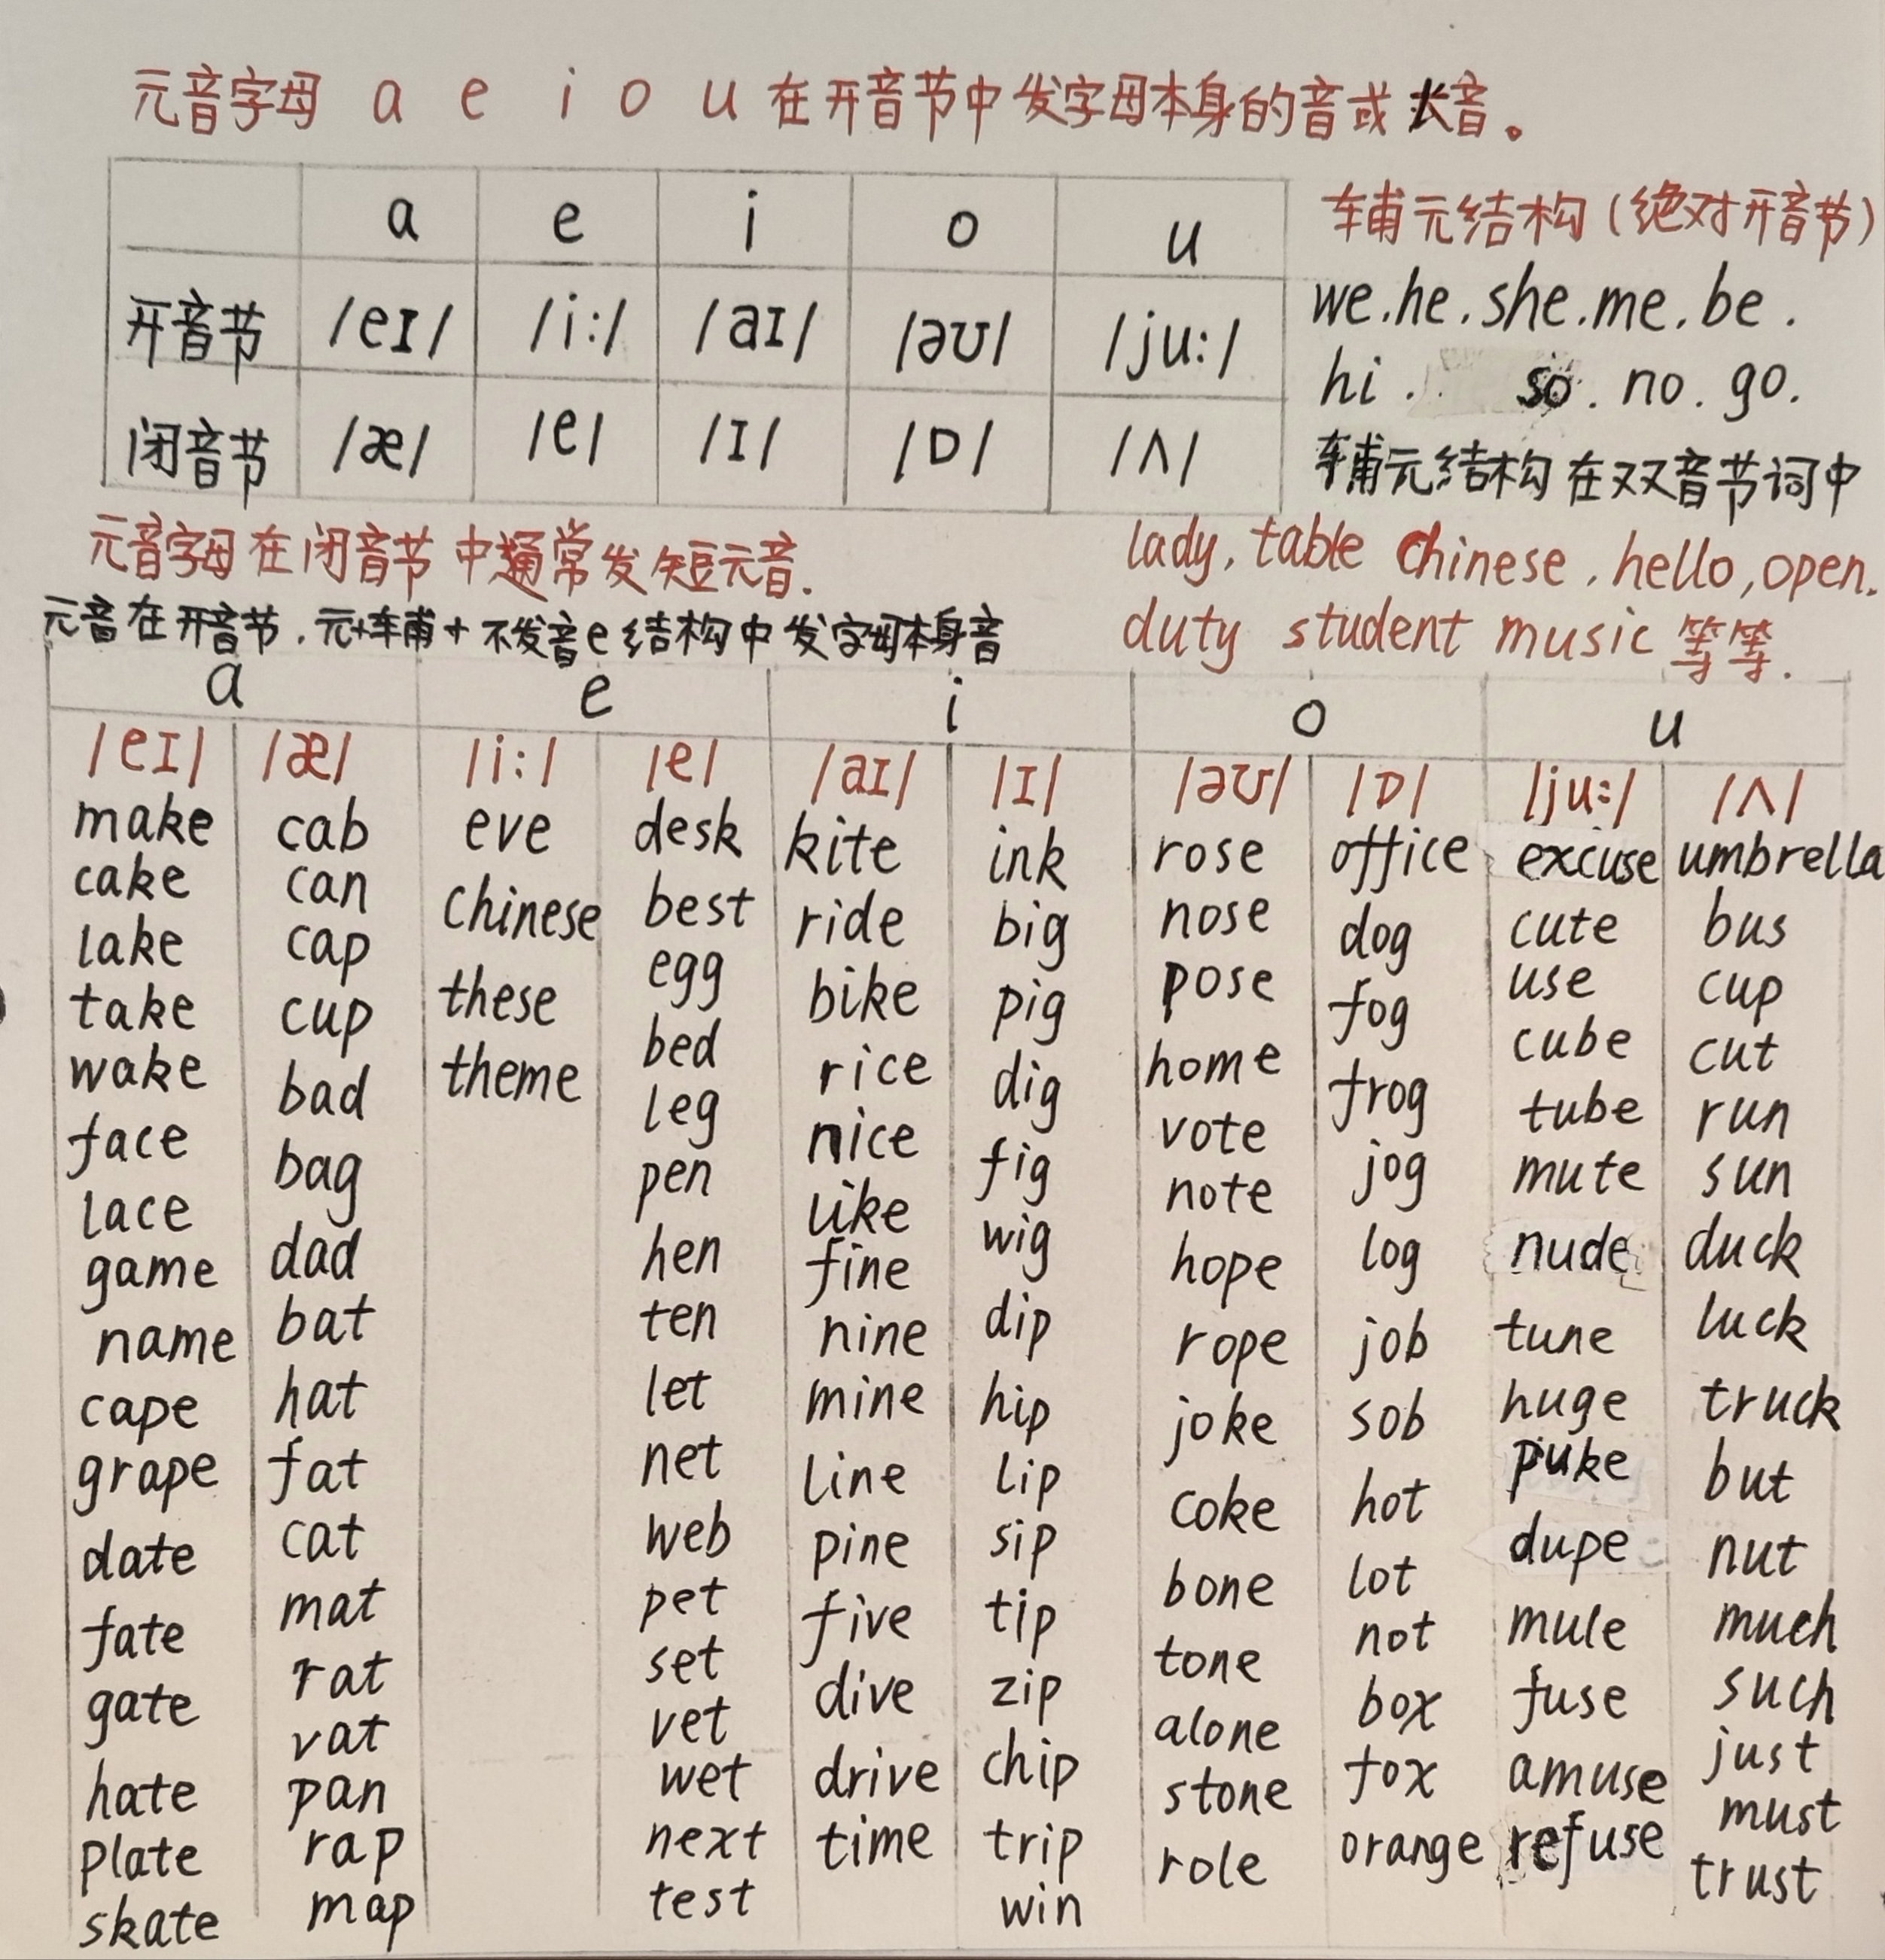 元音字母 a e i o u 在开音节中发字母本身的音或长音。
a e i o u
开音节 /eɪ/ /i:/ /aɪ/ /əʊ/ /ju:/
闭音节 /æ/ /e/ /ɪ/ /ɒ/ /ʌ/
辅元结构(绝对开音节)
we.he.she.me.be.
hi. so. no. go.
辅元结构在双音节词中
lady, table Chinese, hello, open.
duty student music 等等.
元音字母在闭音节中通常发短元音.
元音在开音节.元+辅+不发音e结构中发字母本身音
a e i o u
/eɪ/ /æ/ /i:/ /e/ /aɪ/ /ɪ/ /əʊ/ /ɒ/ /ju:/ /ʌ/
make cab eve desk kite ink rose office excuse umbrella
cake can Chinese best ride big nose dog cute bus
lake cap these egg bike pig pose fog use cup
take cup theme bed rice dig home frog cube cut
wake bad leg nice fig vote jog tube run
face bag pen like wig note log mute sun
lace dad hen fine dip hope job nude duck
game bat ten nine hip rope sob tune luck
name hat let mine lip joke hot huge truck
cape fat net line sip coke lot puke but
grape cat web pine tip bone not dupe nut
date mat pet five zip tone box mule much
fate rat set dive chip alone fox fuse such
gate vat vet drive trip stone orange amuse just
hate pan wet time win role refuse must
plate rap next trust
skate map test